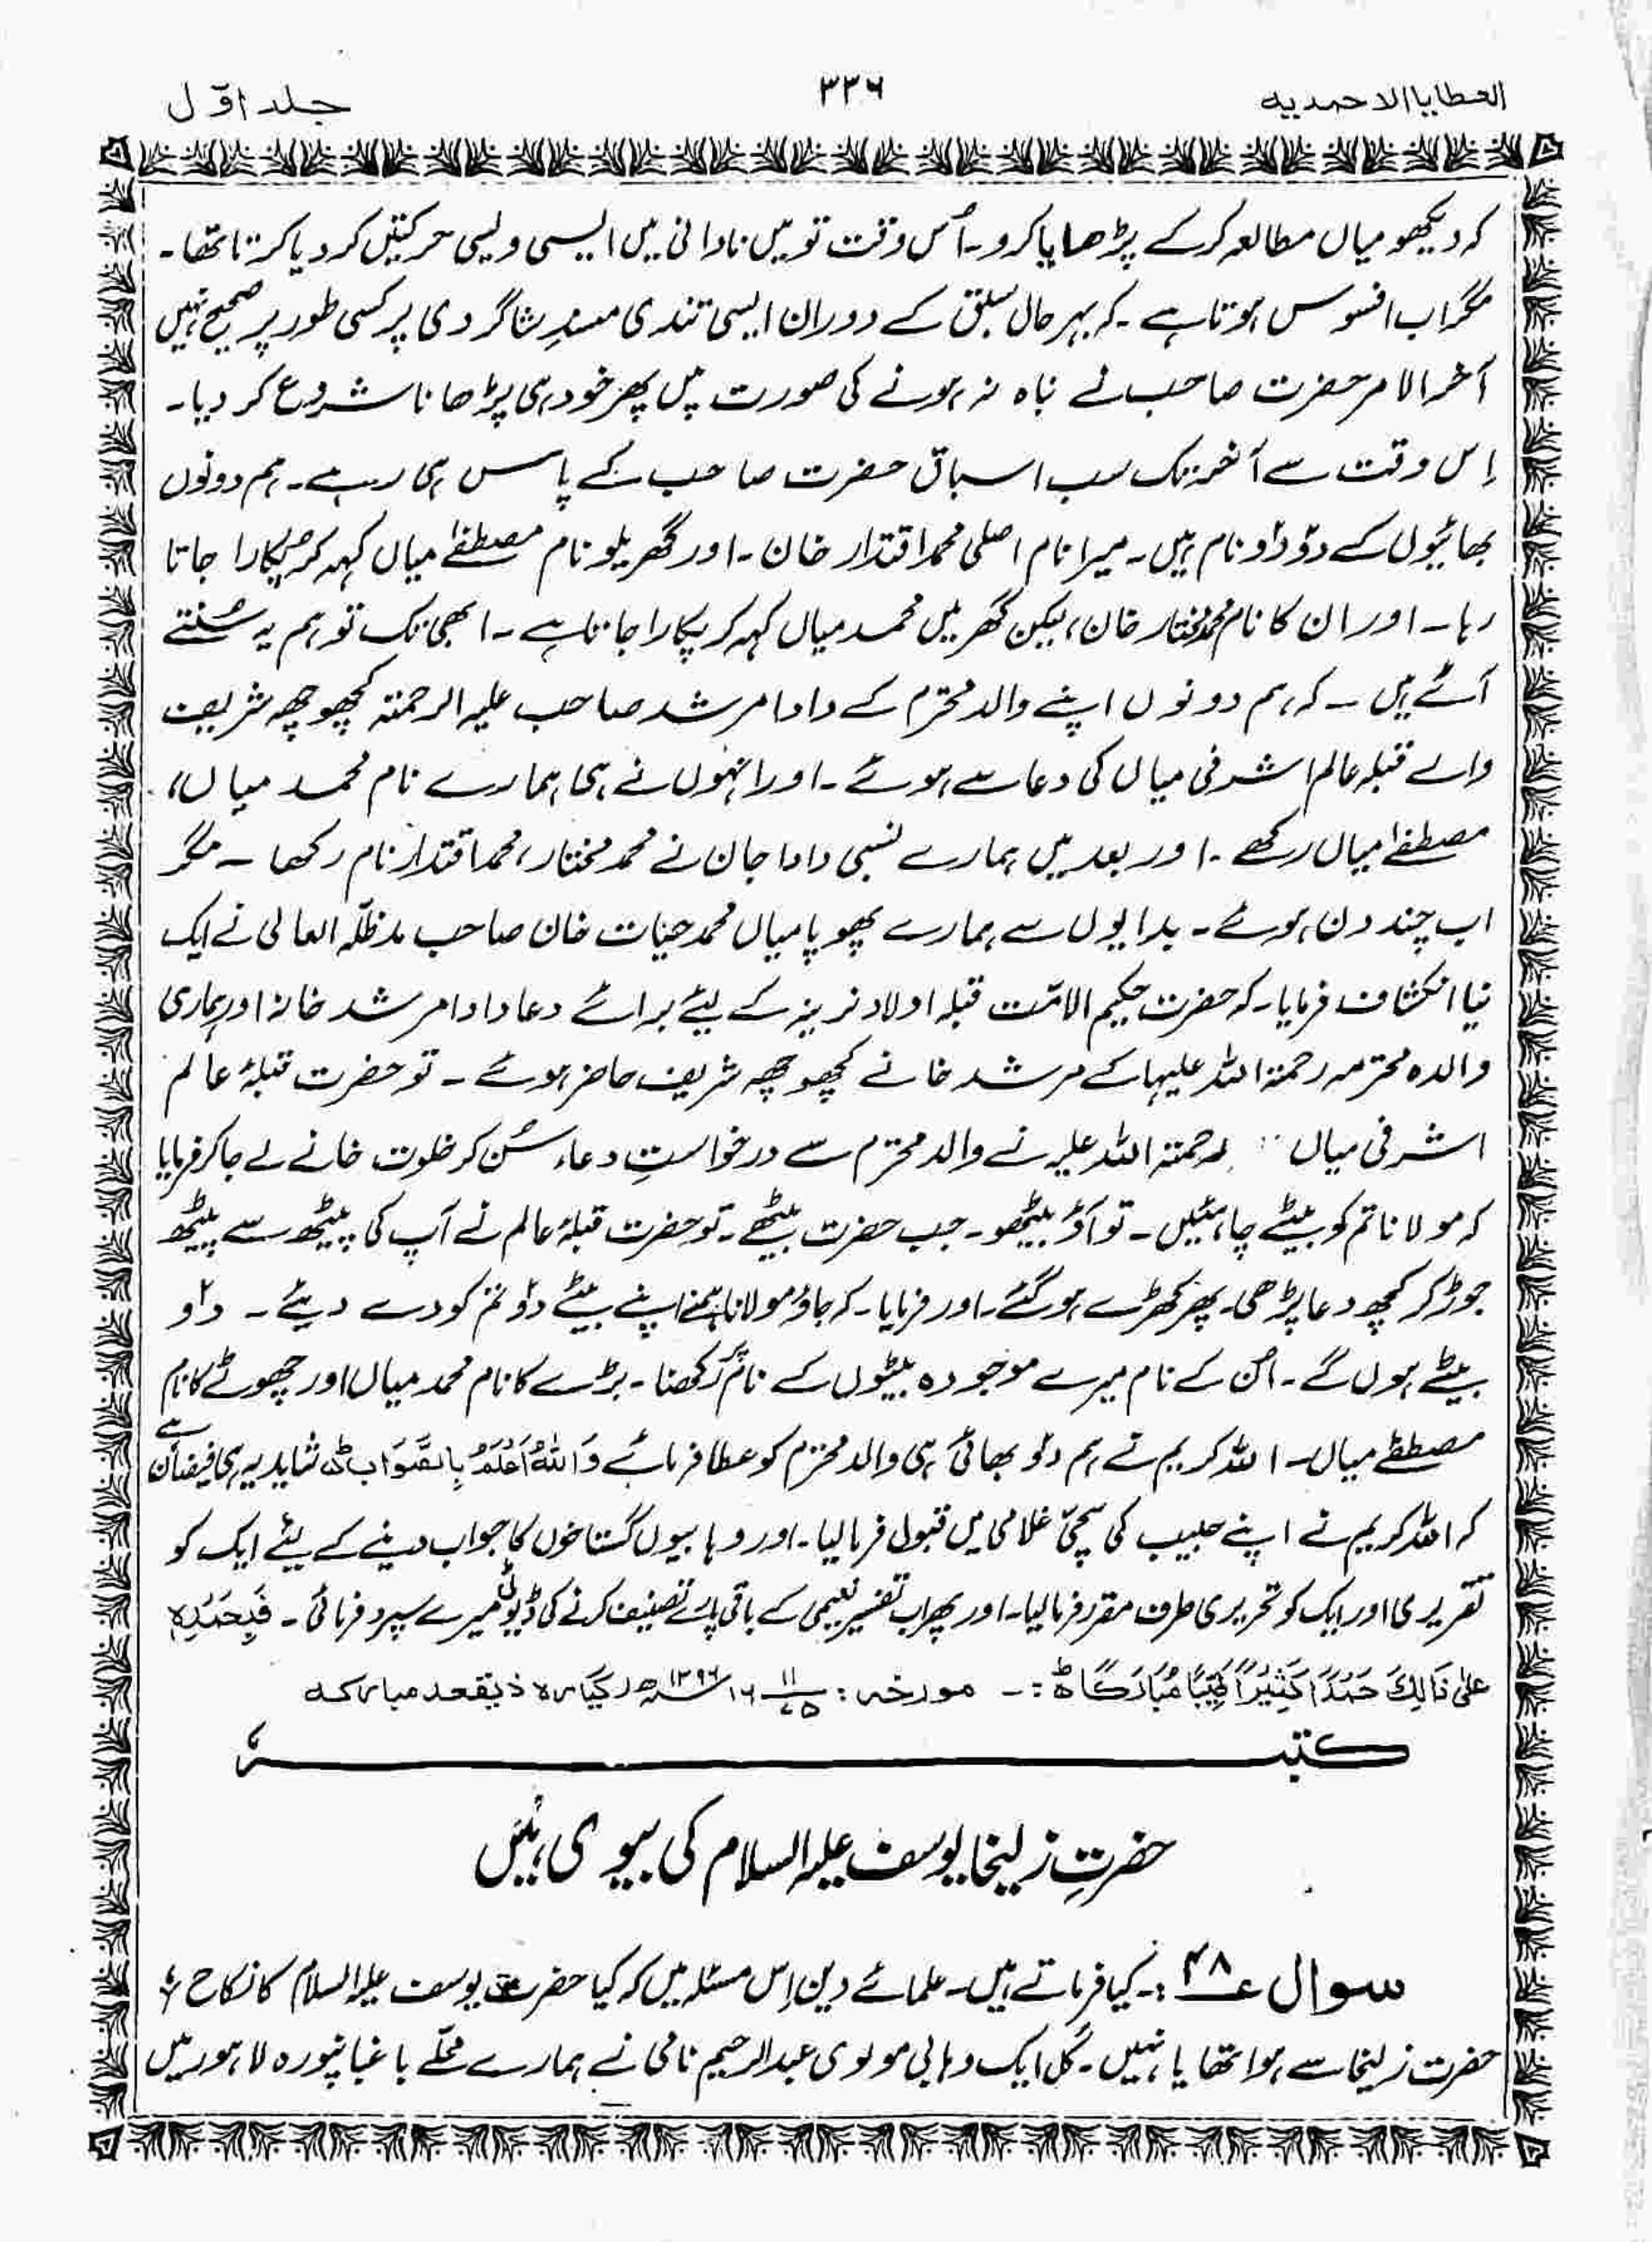 العطایا الاحمدیہ
۳۳۶
جلد اوّل
کہ دیکھو میاں مطالعہ کرکے پڑھایا کرو۔ اُس وقت تو میں نادانی میں ایسی ویسی حرکتیں کر دیا کرتا تھا۔
مگر اب افسوس ہوتا ہے۔ کہ بہر حال سبق کے دوران ایسی تندی مسندِ شاگردی پر کسی طور پر صحیح نہیں
آخر الامر حضرت صاحب نے نباہ نہ ہونے کی صورت میں پھر خود ہی پڑھانا شروع کر دیا۔
اِس وقت سے آخر تک سب اسباق حضرت صاحب کے پاس ہی رہے۔ ہم دونوں
بھائیوں کے دو دو نام ہیں۔ میرا نام اصلی محمد اقتدار خان۔ اور گھریلو نام مصطفےٰ میاں کہہ کر پُکارا جاتا
رہا۔ اور ان کا نام محمد مختار خان، لیکن گھر میں محمد میاں کہہ کر پکارا جاتا ہے۔ ابھی تک تو ہم یہ سُنتے
آئے ہیں۔ کہ ہم دونوں اپنے والد محترم کے دادا مرشد صاحب علیہ الرحمتہ کچھوچھہ شریف
والے قبلہ عالم اشرفی میاں کی دعا سے ہوئے۔ اور انہوں نے ہی ہمارے نام محمد میاں،
مصطفےٰ میاں رکھے۔ اور بعد میں ہمارے نسبی دادا جان نے محمد مختار، محمد اقتدار نام رکھا۔ مگر
اب چند دن ہوئے۔ بدایوں سے ہمارے پھوپا میاں محمد حیات خان صاحب مدظلّہ العالی نے ایک
نیا انکشاف فرمایا۔ کہ حضرت حکیم الامّت قبلہ اولاد نرینہ کے لیئے برائے دعا دادا مرشد خانہ اور ہماری
والدہ محترمہ رحمۃ اللہ علیہا کے مرشد خانے کچھوچھہ شریف حاضر ہوئے۔ تو حضرت قبلۂ عالم
اشرفی میاں رحمتہ اللہ علیہ نے والد محترم سے درخواستِ دعاء سُن کر خلوت خانے لے جا کر فرمایا
کہ مولانا تم کو بیٹے چاہئیں۔ تو آؤ بیٹھو۔ جب حضرت بیٹھے۔ تو حضرت قبلۂ عالم نے آپ کی پیٹھ سے پیٹھ
جوڑ کر کچھ دعا پڑھی۔ پھر کھڑے ہو گئے۔ اور فرمایا۔ کہ جاؤ مولانا ہمنے اپنے بیٹے دو تم کو دے دیئے۔ دو
بیٹے ہوں گے۔ اُن کے نام میرے موجودہ بیٹوں کے نام پر رکھنا۔ بڑے کا نام محمد میاں اور چھوٹے کا نام
مصطفےٰ میاں۔ اللہ کریم نے ہم دو بھائی ہی والد محترم کو عطا فرمائے وَاللہُ اَعْلَمُ بِالصَّوَاب ط شاید یہ ہی فیضان ہے
کہ اللہ کریم نے اپنے حبیب کی سچّی غلامی میں قبول فرما لیا۔ اور وہابیوں گستاخوں کا جواب دینے کے لیئے ایک کو
تقریری اور ایک کو تحریری طرف مقرر فرما لیا۔ اور پھر اب تفسیر نعیمی کے باقی پارے تصنیف کرنے کی ڈیوٹی میرے سپرد فرمائی۔ فَبِحَمْدِہٖ
عَلٰی ذَالِكَ حَمْدًا كَثِيْرًا طَيِّبًا مُبَارَكًا ط :۔ مورخہ : ۱۱/۲۵ ۱۶ ۱۳۹۶ھ گیارہ ذیقعد مبارکہ
کتبہ
حضرتِ زلیخا یوسف علیہ السلام کی بیوی ہیں
سوال ع۴۸ :۔ کیا فرماتے ہیں۔ علمائے دین اِس مسئلہ میں کہ کیا حضرت یوسف علیہ السلام کا نکاح
حضرت زلیخا سے ہوا تھا یا نہیں۔ کل ایک وہابی مولوی عبدالرحیم نامی نے ہمارے محلّے باغبانپورہ لاہور میں